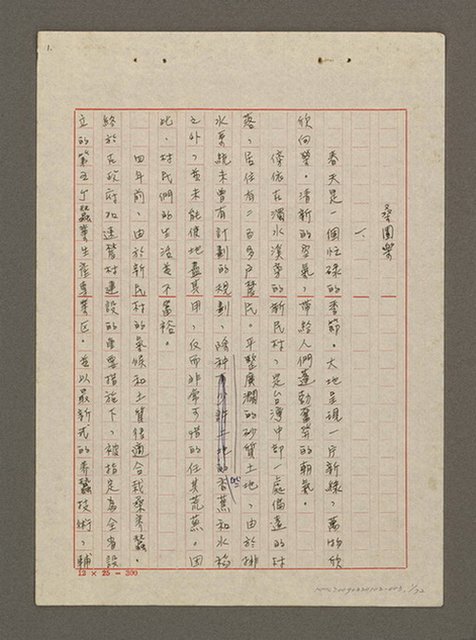 1.
桑園樂
一、
春天是一個忙碌的季節。大地呈現一片新綠，萬物欣
欣向榮。清新的空氣，帶給人們蓬勃奮發的朝氣。
傍依在濁水溪旁的新民村，是台灣中部一處偏遠的村
落，居住有二百多戶農民。平整廣濶的砂質土地，由於排
水系統未曾有計劃的規劃，除種的香蕉和水稻
之外，並未能使地盡其用，反而非常可惜的任其荒蕪。因
此，村民們的生活並不富裕。
四年前，由於新民村的氣候和土質很適合栽桑養蠶。
終於在政府加速農村建設的重要措施下，被指定為全省設
立的第五個蠶業生產專業區。並以最新式的養蠶技術，輔
12 × 25 = 300
1/72